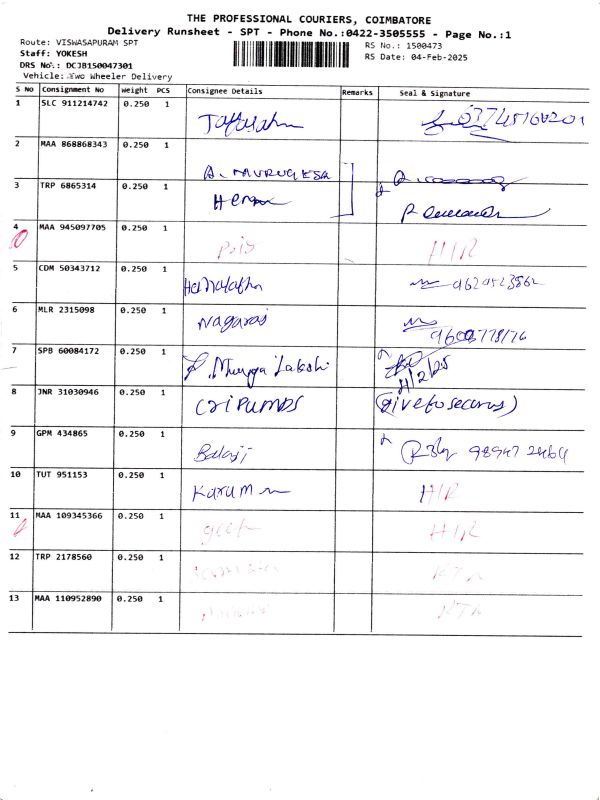 THE PROFESSIONAL COURIERS, COIMBATORE
Delivery Runsheet - SPT - Phone No.:0422-3505555 - Page No.:1
Route: VISWASAPURAM SPT RS No.: 1500473
Staff: YOKESH RS Date: 04-Feb-2025
DRS No.: DCJB150047301
Vehicle: Two Wheeler Delivery
S No Consignment No Weight PCS Consignee Details Remarks Seal & Signature
1 SLC 911214742 0.250 1
2 MAA 868868343 0.250 1 A. MURUGESA
3 TRP 6865314 0.250 1
4 MAA 945097705 0.250 1 HIR
5 CDM 50343712 0.250 1 Hemalatha
6 MLR 2315098 0.250 1 Nagaraj
7 SPB 60084172 0.250 1 P. Muruga Lakshi 4/2/25
8 JNR 31030946 0.250 1 CRI PUMPS
9 GPM 434865 0.250 1 Balaji
10 TUT 951153 0.250 1 HIR
11 MAA 109345366 0.250 1 HIR
12 TRP 2178560 0.250 1
13 MAA 110952890 0.250 1